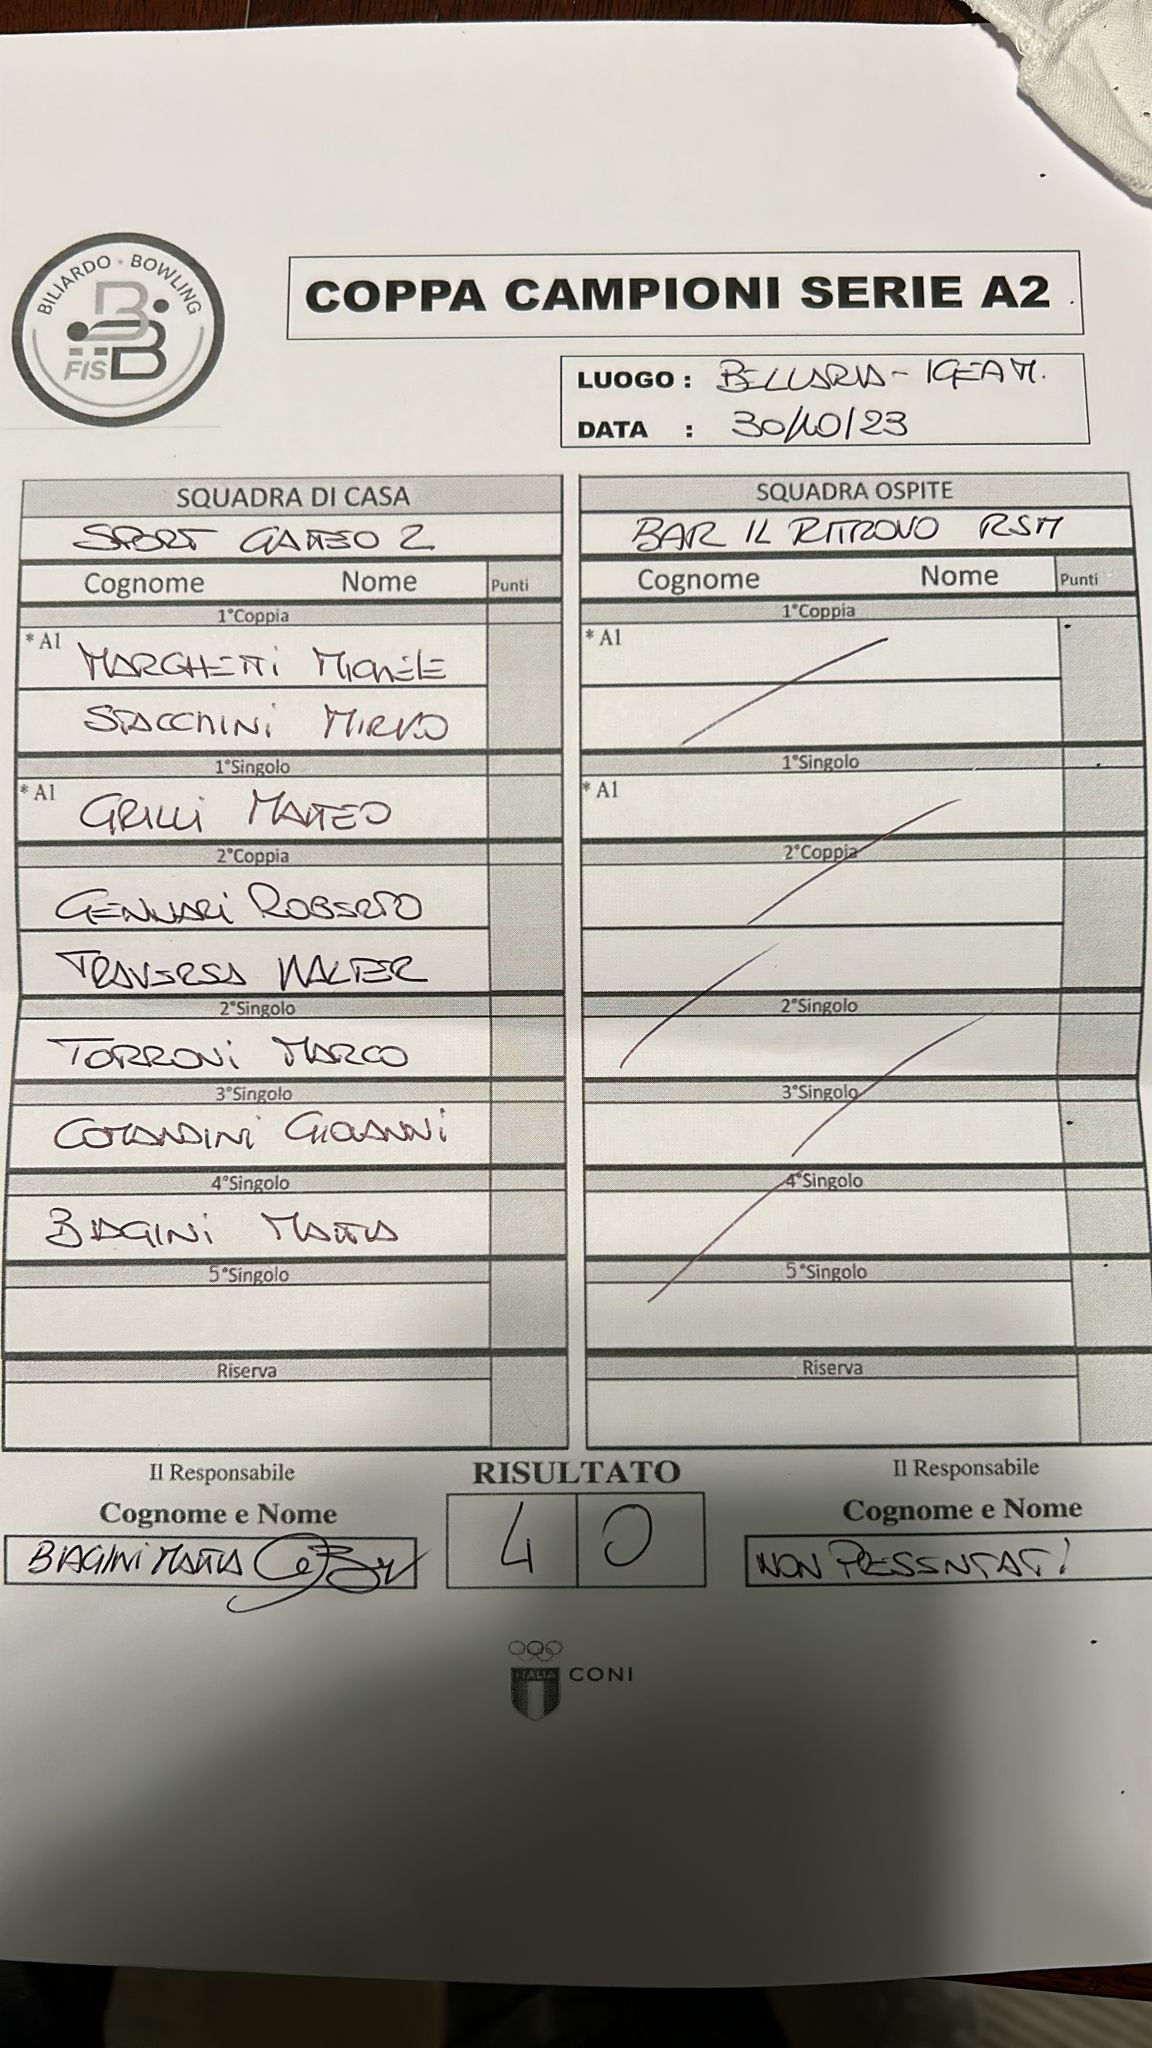 BILIARDO · BOWLING
FISBB
COPPA CAMPIONI SERIE A2
LUOGO : BELLARIA - IGEA M.
DATA : 30/10/23
SQUADRA DI CASA
SPORT GATTEO 2
Cognome Nome Punti
1°Coppia
* A1 MARGHETTI MICHELE
STACCHINI MIRKO
1°Singolo
* A1 GRILLI MATTEO
2°Coppia
GENNARI ROBERTO
TRAVERSA WALTER
2°Singolo
TORRONI MARCO
3°Singolo
COMANDINI GIOVANNI
4°Singolo
BIAGINI MATTIA
5°Singolo
Riserva
SQUADRA OSPITE
BAR IL RITROVO RSM
Cognome Nome Punti
1°Coppia
* A1
1°Singolo
* A1
2°Coppia
2°Singolo
3°Singolo
4°Singolo
5°Singolo
Riserva
Il Responsabile
Cognome e Nome
BIAGINI MATTIA
RISULTATO
4 0
Il Responsabile
Cognome e Nome
NON PRESENTATI
ITALIA
CONI